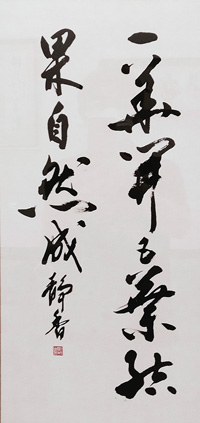 一華開五葉結
果自然成 静香